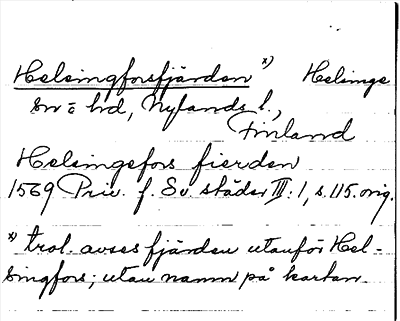 Helsingforsfjärden x) Helsinge
sn o hd, Nylands l.,
Finland
Helsingefors fierden
1569 Priv. f. Sv. städer III: 1, s. 115. orig.
x) trol. avses fjärden utanför Hel-
singfors; utan namn på kartan.